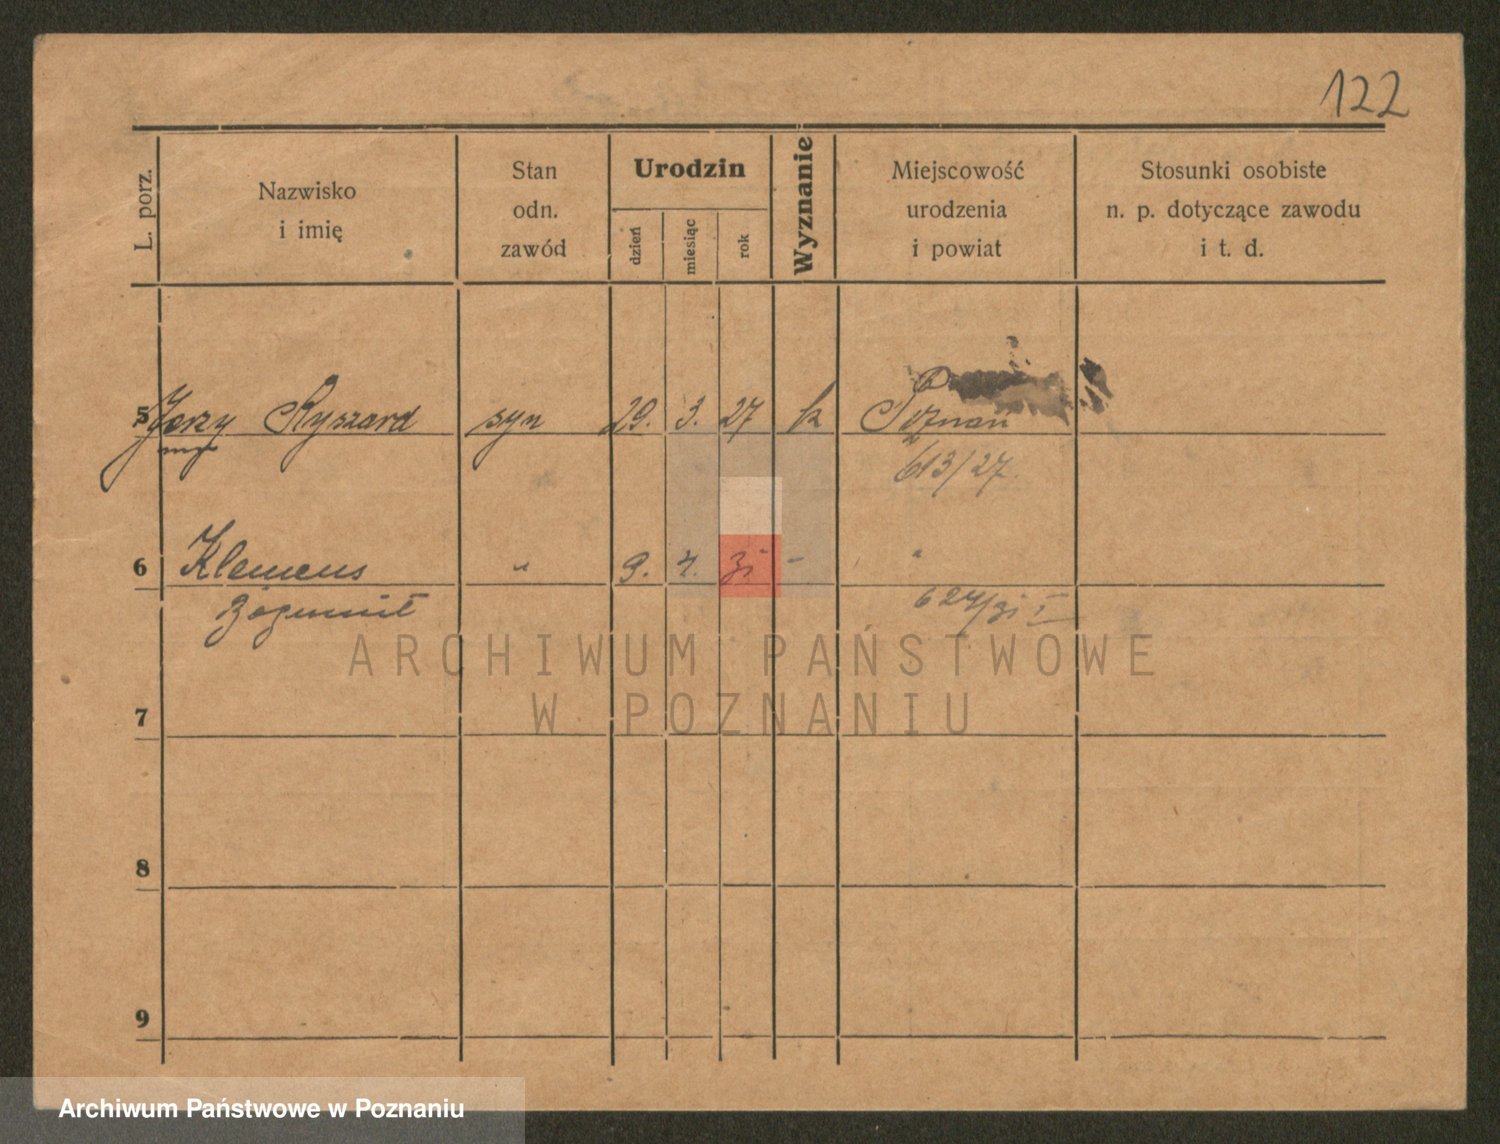 122
L. porz.
Nazwisko
i imię
Stan
odn.
zawód
Urodzin
dzień
miesiąc
rok
Wyznanie
Miejscowość
urodzenia
i powiat
Stosunki osobiste
n. p. dotyczące zawodu
i t. d.
5 Jerzy Ryszard syn 29. 3. 27 k Poznań
613/27.
6 Klemens " 9. 4. 31 - "
Bogumił 627/31 I
7
8
9
ARCHIWUM PAŃSTWOWE
W POZNANIU
Archiwum Państwowe w Poznaniu